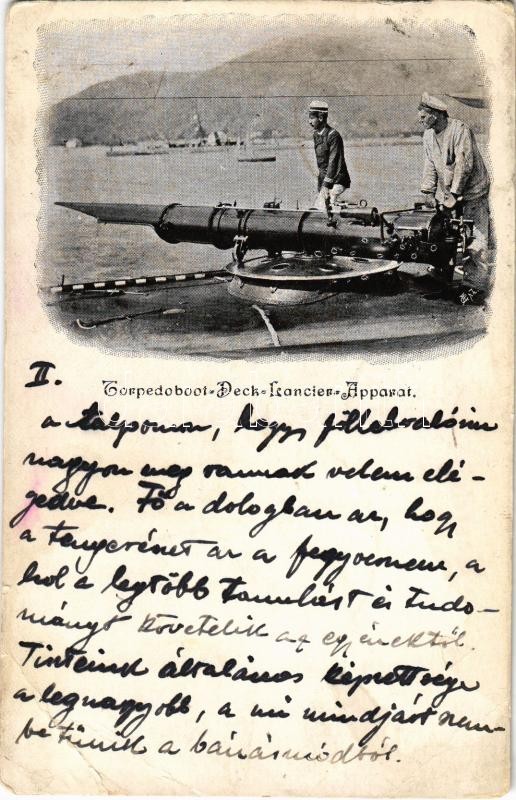 II.
Torpedoboot-Deck-Lancier-Apparat.
a talpomon, hogy föllebvalóim
nagyon meg vannak velem elé-
gedve. Fő a dologban az, hogy
a tengerészet az a fegyvernem, a
hol a legtöbb tanulást és tudo-
mányt követelik az egyénektől.
Tisteink általános képzettsége
a legnagyobb, a mi mindjárt szem-
be tünik a bánásmódból.